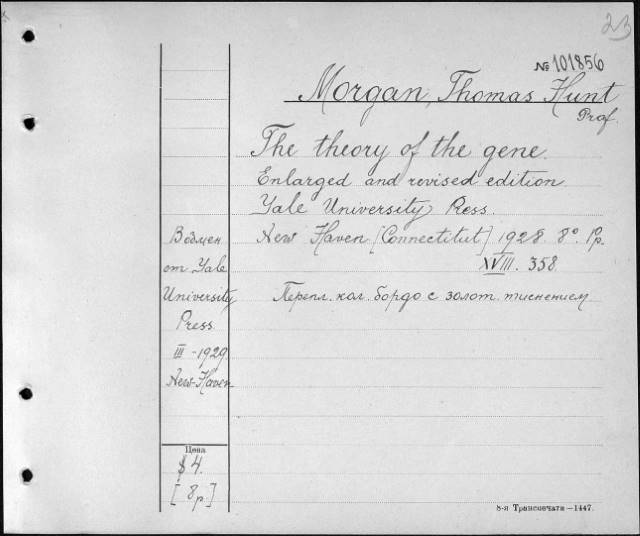 23
№ 101856
Morgan, Thomas Hunt
Prof.
The theory of the gene.
Enlarged and revised edition.
Yale University Press.
New Haven [Connectitut] 1928. 8°. Pp.
XVIII. 358.
Перепл. кол. бордо с золот. тиснением
Возмен
от Yale
University
Press
III - 1929
New-Haven
Цена
$ 4.
[ 8 р.]
8-я Транспечати—1447.